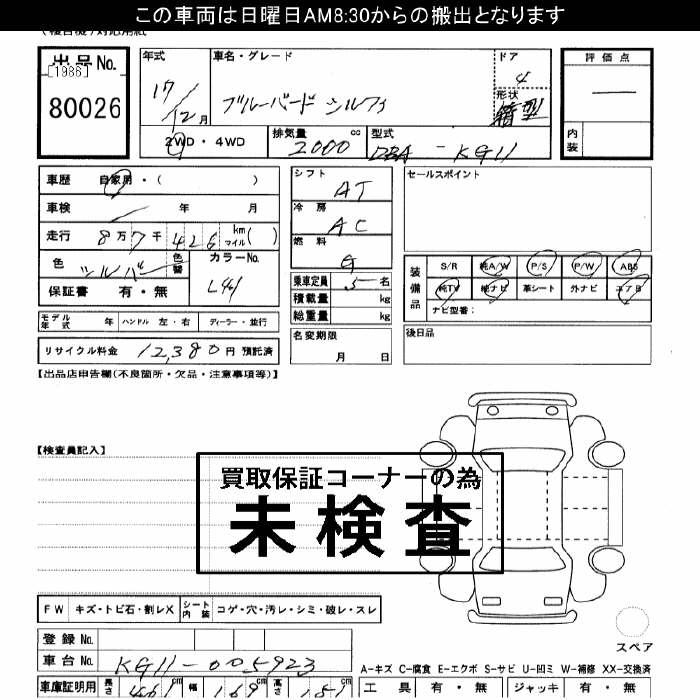 この車両は日曜日AM8:30からの搬出となります
出品No.
[1986]
80026
年式
17/12月
車名・グレード
ブルーバード シルフィ
ドア
4
形状
箱型
評価点
内装
2WD・4WD
排気量 cc
2000
型式
DBA-KG11
車歴 自家用・( )
車検 年 月
走行 8万7千426 km マイル( )
色 シルバー 色替
カラーNo.
保証書 有・無
シフト
AT
冷房
AC
燃料
G
乗車定員 5名
積載量 kg
総重量 kg
セールスポイント
装備品
S/R 純A/W P/S P/W ABS
純TV 純ナビ 革シート 外ナビ エアB
ナビ型番:
モデル年式 年 ハンドル 左・右 ディーラー・並行
名変期限
月 日
後日品
リサイクル料金 12,380円 預託済
【出品店申告欄(不良箇所・欠品・注意事項等)】
【検査員記入】
買取保証コーナーの為
未検査
FW キズ・トビ石・割レX シート内装 コゲ・穴・汚レ・シミ・破レ・スレ
スペア
登録No.
車台No. KG11-005923
A-キズ C-腐食 E-エクボ S-サビ U-凹ミ W-補修 XX-交換済
車庫証明用 長さ 461cm 幅 169cm 高さ 151cm
工具 有・無 ジャッキ 有・無